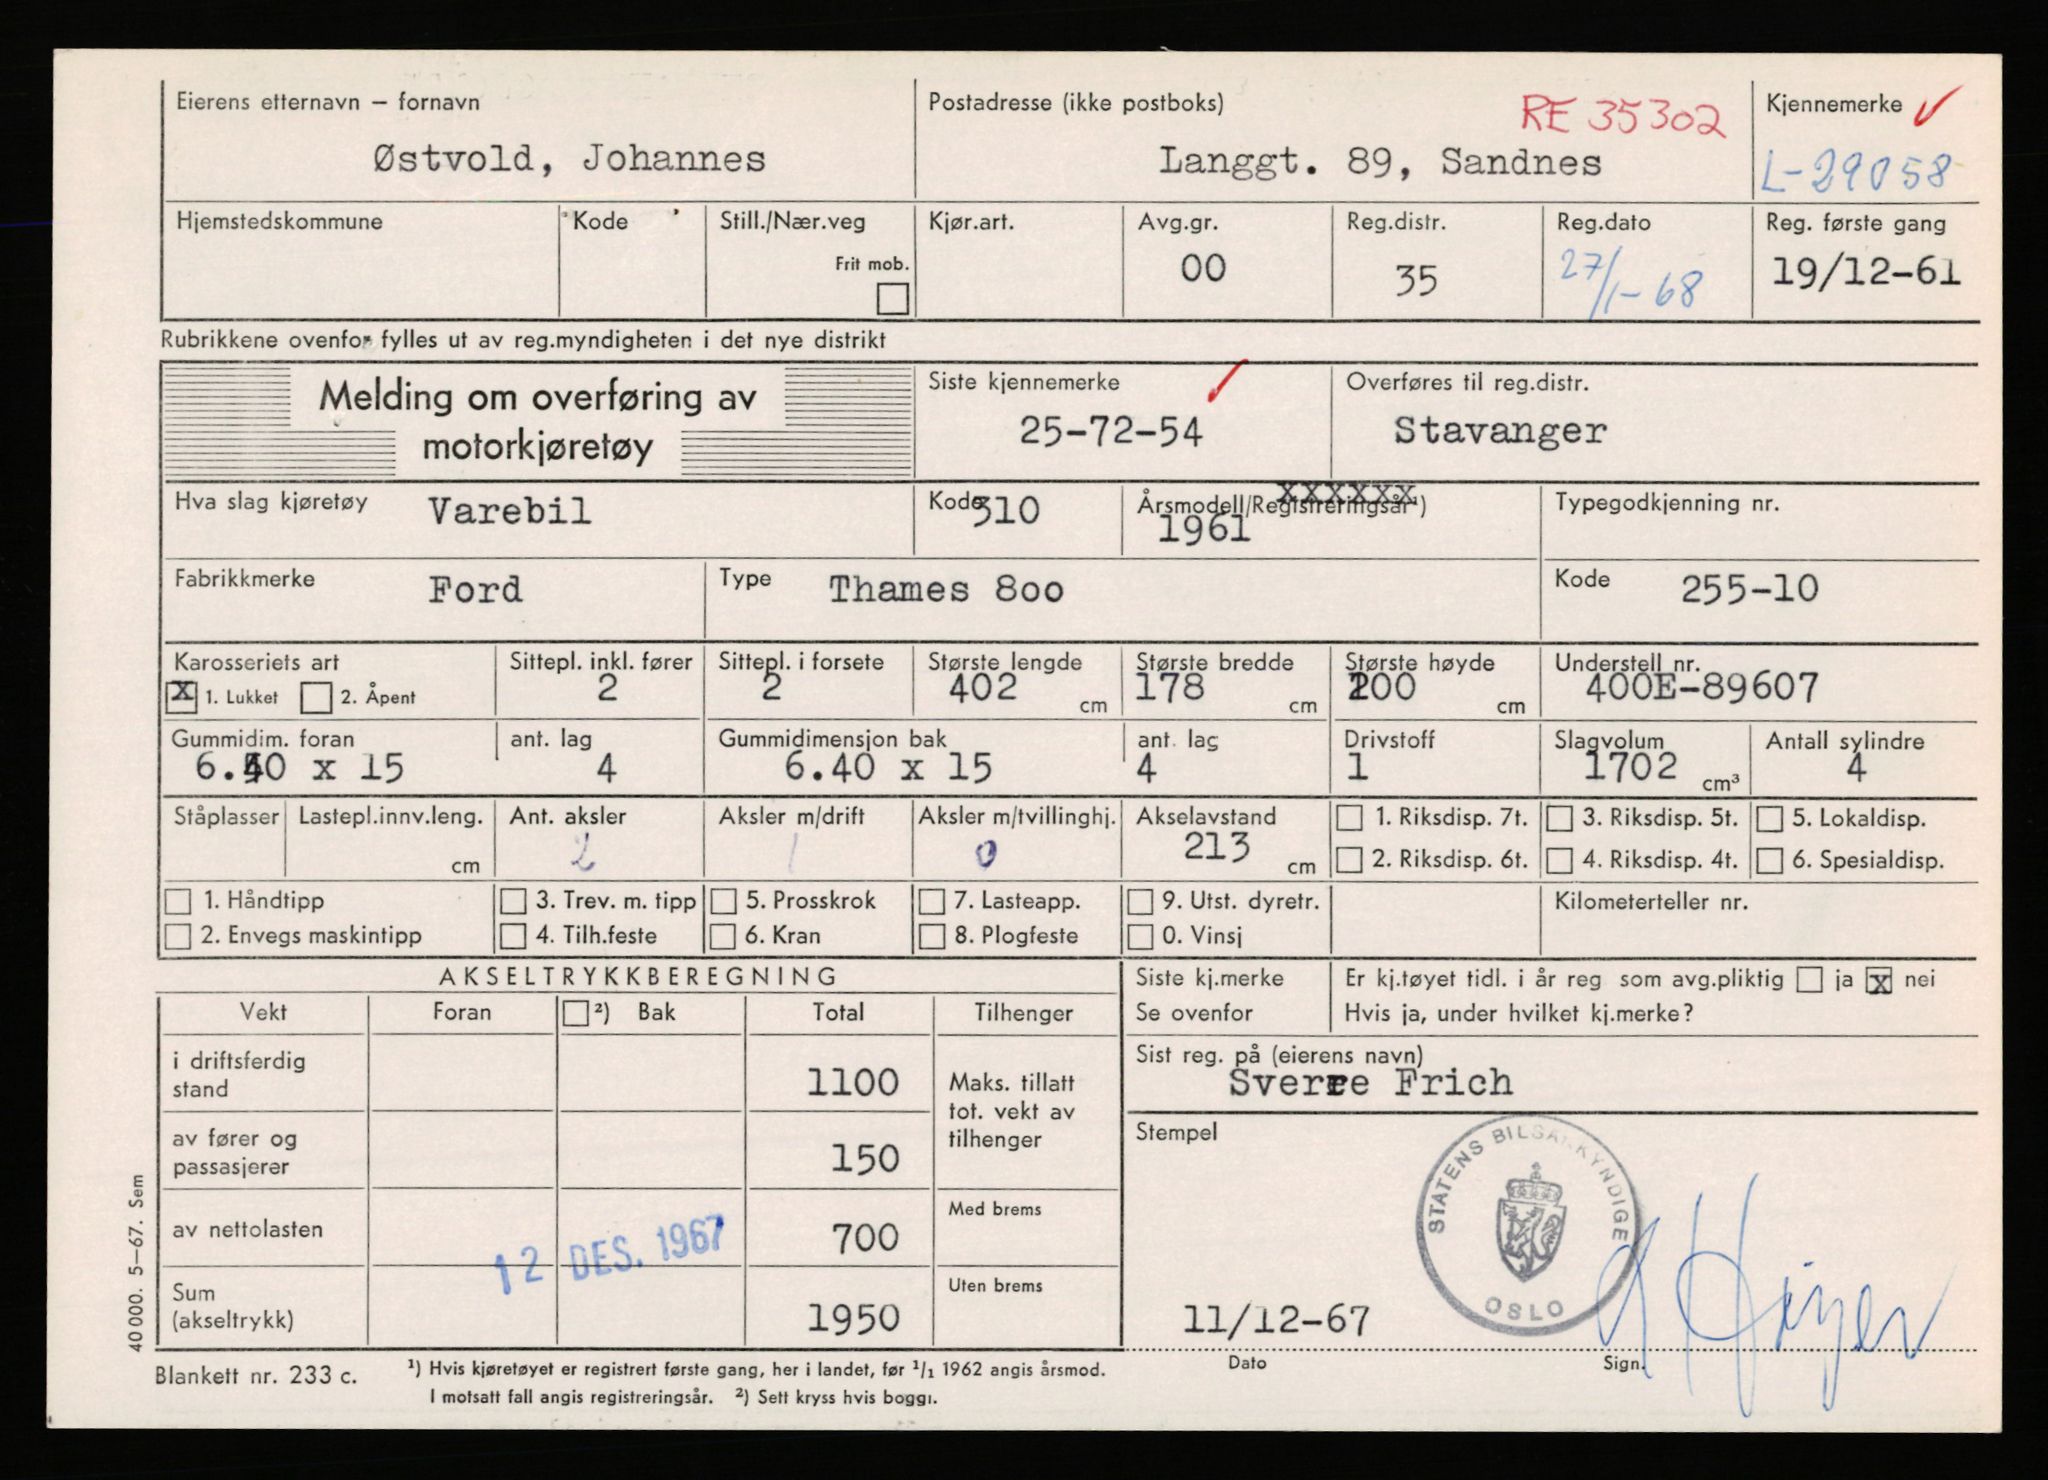 Eierens etternavn – fornavn
Østvold, Johannes
Postadresse (ikke postboks)
RE 35302
Langgt. 89, Sandnes
Kjennemerke ✓
L-29058
Hjemstedskommune
Kode
Still./Nær.veg
Frit mob.
Kjør.art.
Avg.gr.
00
Reg.distr.
35
Reg.dato
27/1-68
Reg. første gang
19/12-61
Rubrikkene ovenfor fylles ut av reg.myndigheten i det nye distrikt
Melding om overføring av
motorkjøretøy
Siste kjennemerke
25-72-54
Overføres til reg.distr.
Stavanger
Hva slag kjøretøy
Varebil
Kode
310
Årsmodell/Registreringsår¹)
1961
Typegodkjenning nr.
Fabrikkmerke
Ford
Type
Thames 800
Kode
255-10
Karosseriets art
X 1. Lukket 2. Åpent
Sittepl. inkl. fører
2
Sittepl. i forsete
2
Største lengde
402 cm
Største bredde
178 cm
Største høyde
200 cm
Understell nr.
400E-89607
Gummidim. foran
6.40 x 15
ant. lag
4
Gummidimensjon bak
6.40 x 15
ant. lag
4
Drivstoff
1
Slagvolum
1702 cm³
Antall sylindre
4
Ståplasser
Lastepl.innv.leng.
cm
Ant. aksler
2
Aksler m/drift
1
Aksler m/tvillinghj.
0
Akselavstand
213 cm
1. Riksdisp. 7t.
2. Riksdisp. 6t.
3. Riksdisp. 5t.
4. Riksdisp. 4t.
5. Lokaldisp.
6. Spesialdisp.
1. Håndtipp
2. Envegs maskintipp
3. Trev. m. tipp
4. Tilh.feste
5. Prosskrok
6. Kran
7. Lasteapp.
8. Plogfeste
9. Utst. dyretr.
0. Vinsj
Kilometerteller nr.
AKSELTRYKKBEREGNING
Vekt
Foran
²) Bak
Total
Tilhenger
i driftsferdig
stand
1100
av fører og
passasjerer
150
av nettolasten
700
Sum
(akseltrykk)
1950
Maks. tillatt
tot. vekt av
tilhenger
Med brems
Uten brems
12 DES. 1967
Siste kj.merke
Se ovenfor
Er kj.tøyet tidl. i år reg som avg.pliktig ja X nei
Hvis ja, under hvilket kj.merke?
Sist reg. på (eierens navn)
Sverre Frich
Stempel
STATENS BILSAKKYNDIGE
OSLO
11/12-67
Dato
Sign.
40 000. 5–67. Sem
Blankett nr. 233 c.
¹) Hvis kjøretøyet er registrert første gang, her i landet, før ¹/₁ 1962 angis årsmod.
I motsatt fall angis registreringsår. ²) Sett kryss hvis boggi.